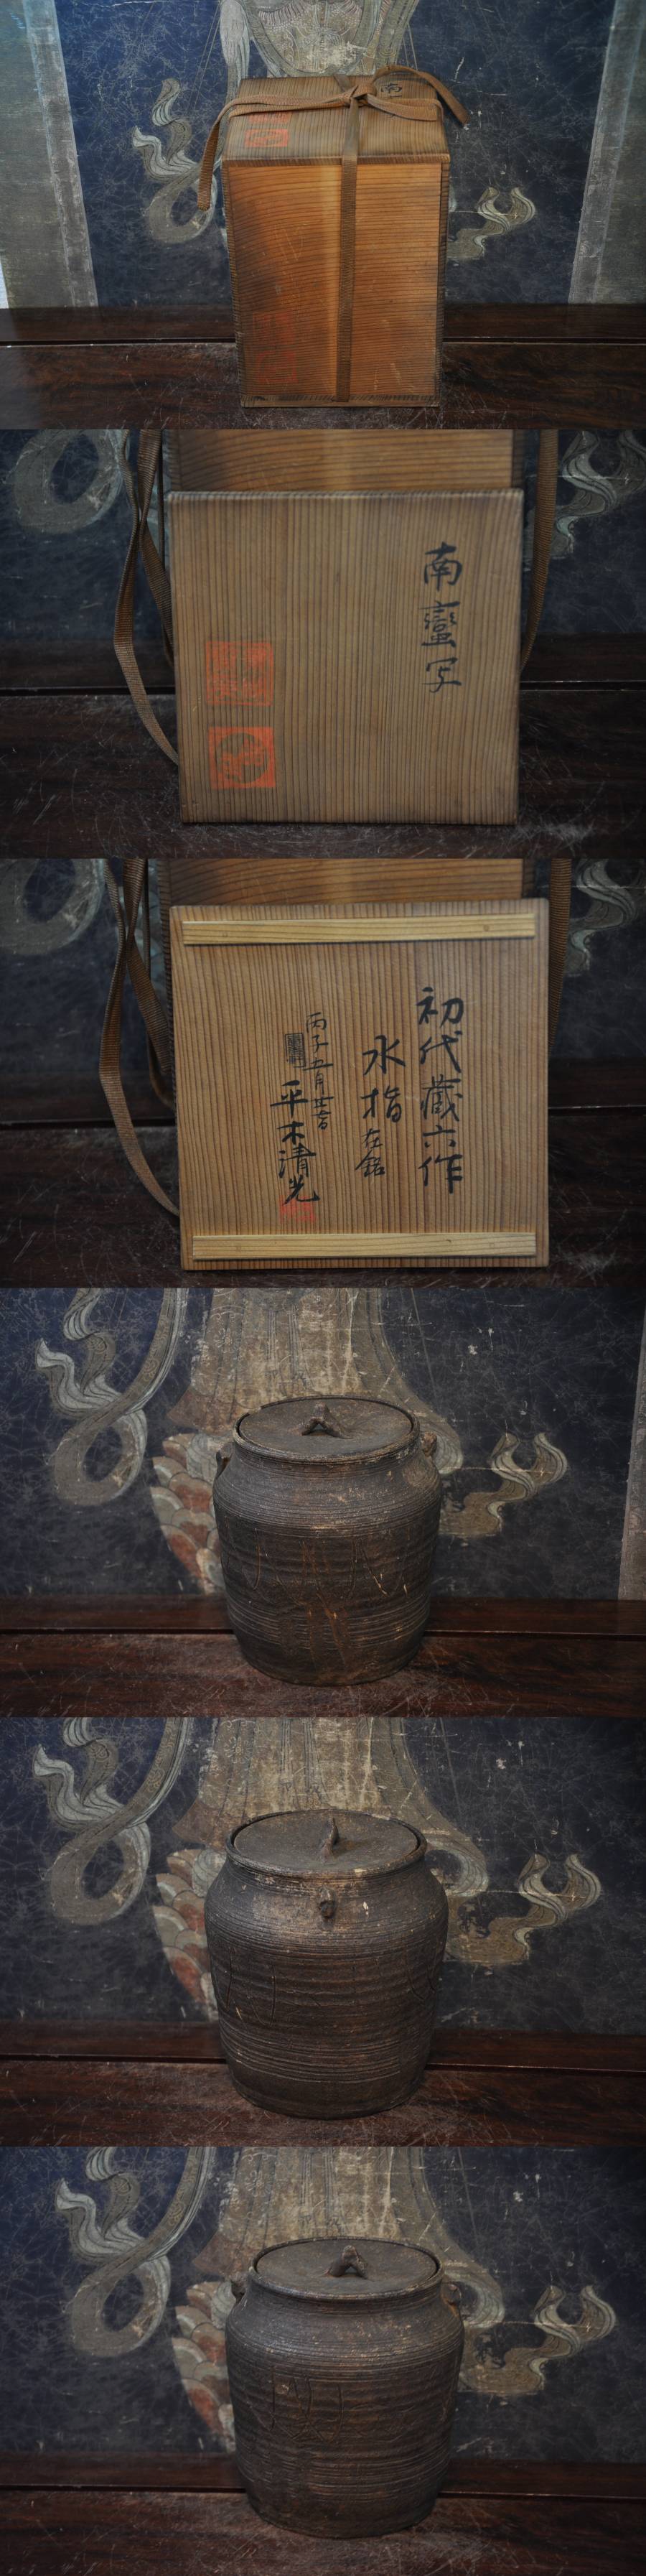 南
南蛮写
初代藏六作
水指 在銘
丙子五月廿二日
平木清光